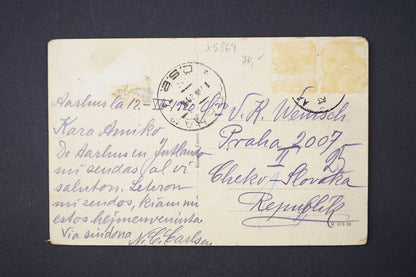 X5869
70,-
Aarhus la 12-
Kara Amiko
De Aarhus en Jutlando
mi sendas al vi
saluton. Leteron
mi sendos, kiam mi
estos hejmenveninta.
Via sindona N.C. Carlsen
V. K. Wenusch
Praha 2007
II
Cheko-Slovaka
Republik